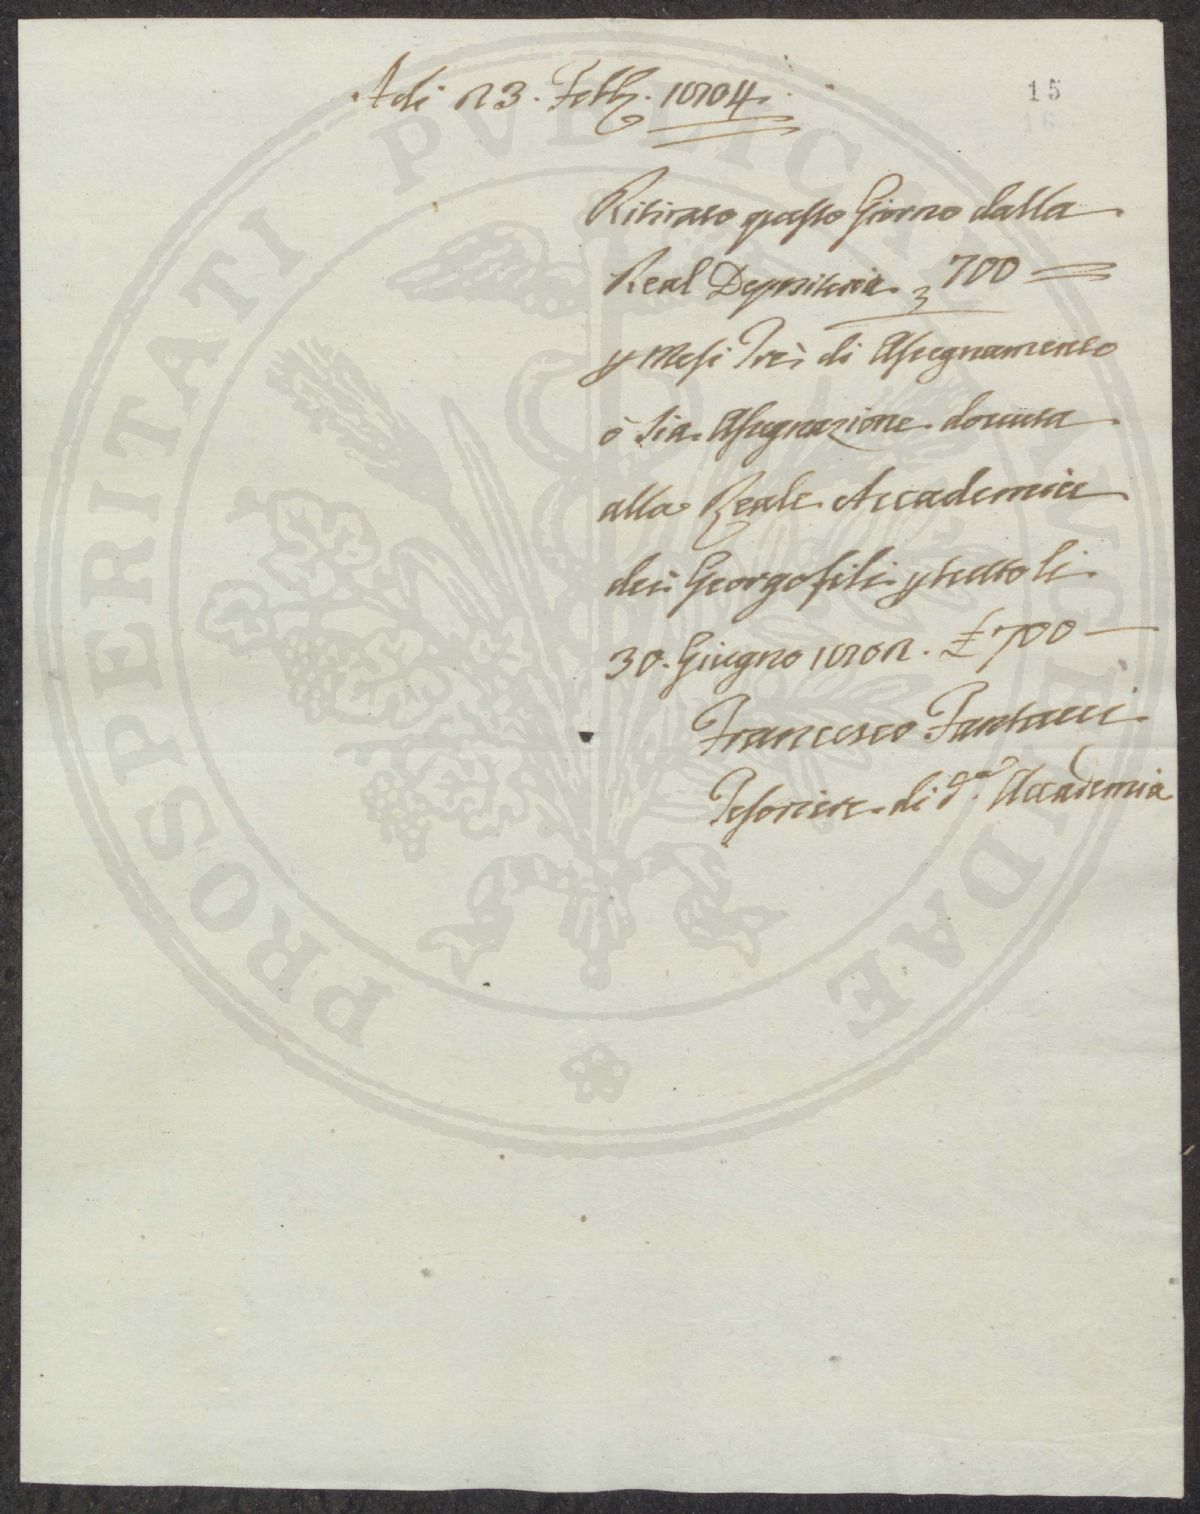 Adi 23. Febb. 1804.
15
16
Ritirato questo Giorno dalla
Real Depositeria 700
p Mesi Trè di Assegnamento
ò sia Assegnazione dovuta
alla Reale Accademia
dei Georgofili p tutto li
30. Giugno 1802. £ 700
Francesco Pantacci
Tesoriere di d.ª Accademia
PROSPERITATI PVBLICAE AVGENDAE